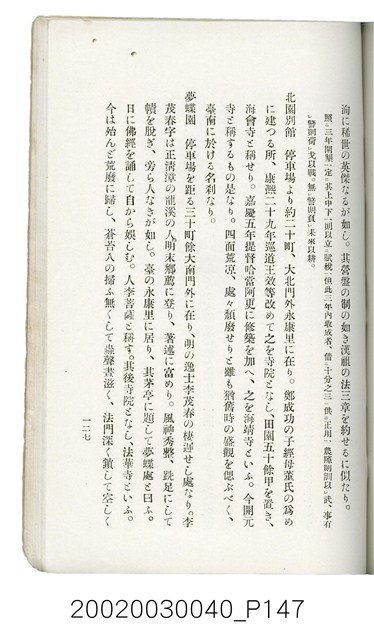 洵に稀世の英傑なるが如し。其營盤の制の如き漢祖の法三章を約せるに似たり。
照。三年開墾一定。其上中下一則以立。賦稅一但此三年內收成者、借。十分之三。供。正用。農隙則訓以。武、事有
警則荷。戈以戰。無。警則負。耒以耕。
北園別館　停車場より約二十町、大北門外永康里に在り。鄭成功の子經母董氏の爲め
に建つる所、康熙二十九年巡道王效等改めて之を寺院となし、田園五十餘甲を置き、
海會寺と稱せり。嘉慶五年提督哈當阿更に修築を加へ、之を海靖寺といふ。今開元
寺と稱するもの是なり。四面荒凉、處々頽廢せりと雖も猶舊時の盛觀を偲ぶべく、
臺南に於ける名刹なり。
夢蝶園　停車場を距る三十町餘大南門外に在り、明の逸士李茂春の棲遲せし處なり。李
茂春字は正淸漳の龍溪の人、明末鄕薦に登り、著述に富めり。風神秀整、跣足にして
幘を脫ぎ、旁ら人なきが如し。臺の永康里に居り、其茅亭に題して夢蝶處と曰ふ。
日に佛經を誦して自から娛しむ。人李菩薩と稱す。其後寺院となし、法華寺といふ。
今は殆んど荒廢に歸し、蒼苔人の掃ふ無くして蟲聲晝滋く、法門深く鎖して空しく
一二七
20020030040_P147